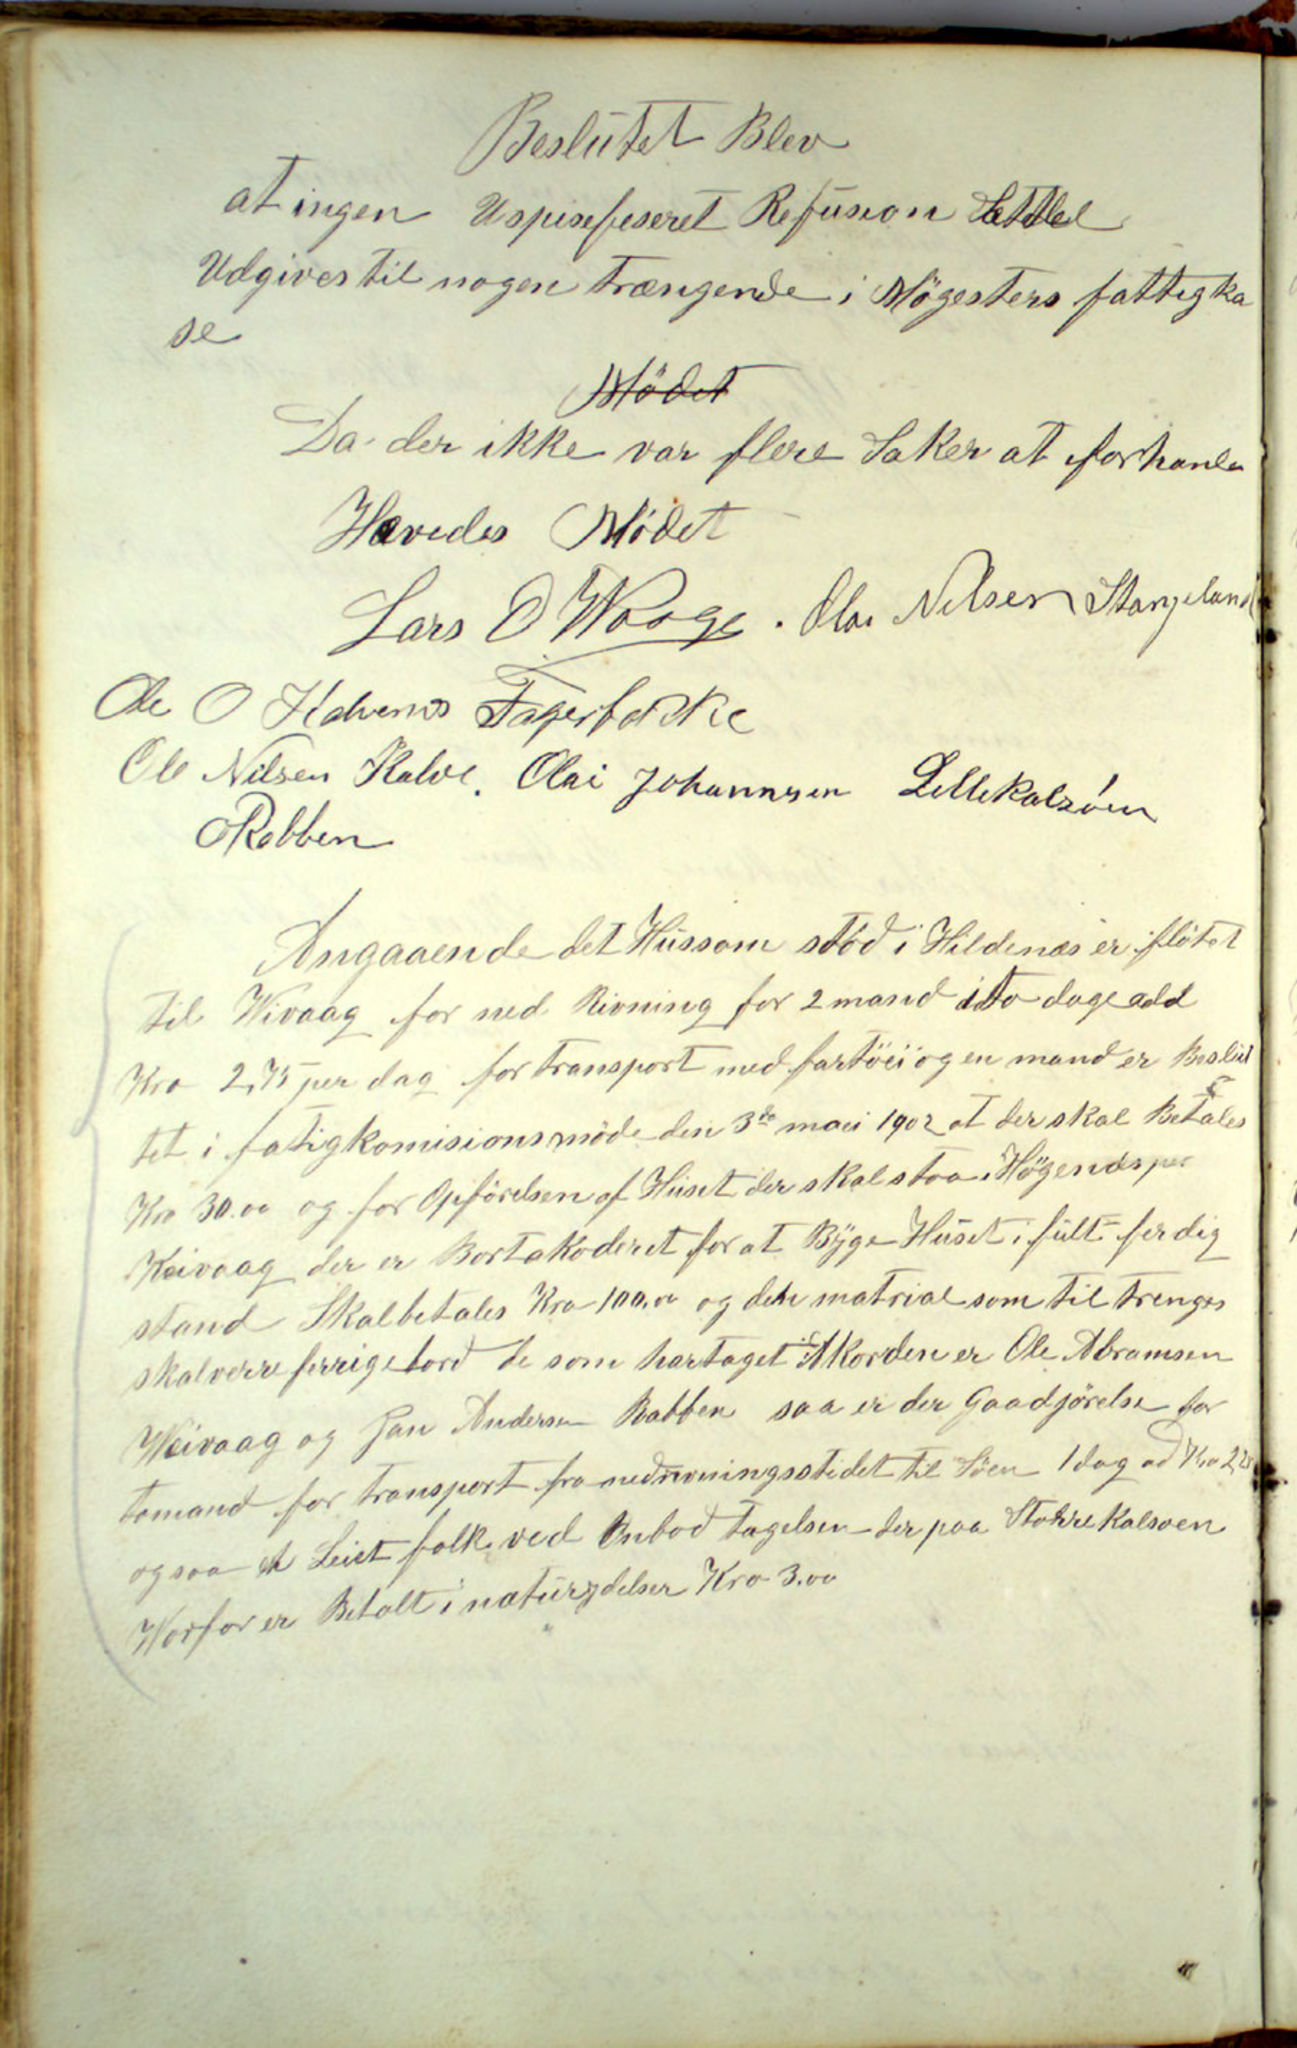 Beslutet Blev
at ingen Uspisefeseret Refusion Settel
Udgives til nogen trængende i Møgsters fattigka
se
Mödet
Da der ikke var flere Saker at forhanle
Hævedes Mödet
Lars O Waage. Olai Nilsen Stangeland
Ole O Halvenes Fagerbakke
Ole Nilsen Kalve. Olai Johannsen Lillekalsöen
Rabben
Angaaende det Hus som stod i Hildenæs er flötet
til Wivaag for ned Rivning for 2 mand i to dage add
Kro 2,75 per dag for transport med fartöei og en mand er Beslut
tet i fatigkomisionsmöde den 3de maei 1902 at der skal Betales
Kro 30.00 og for Opförelsen af Huset der skal staa i Högenæs per
Keivaag der er Bortakoderet for at Byge Huset i fult ferdig
stand Skal betales Kro 100.00 og den matrial som til trenges
skal verre ferrige bord de som har taget Akorden er Ole Abramsen
Weivaag og Jan Andersen Rabben saa er der Gaadjörelse for
tomand for transport fra nedrivningsstedet til Söen 1 dag ad Kro 2,25
ogsaa Leiet folk ved Ombod tagelsen der paa Storre Kalsoen
Worfor er Betalt i naturydelser Kro 3.00